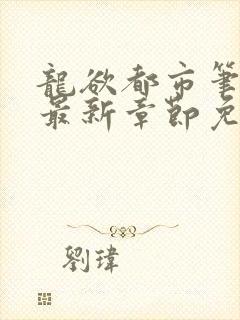 龍欲都市筆
最新章節免
劉瑋